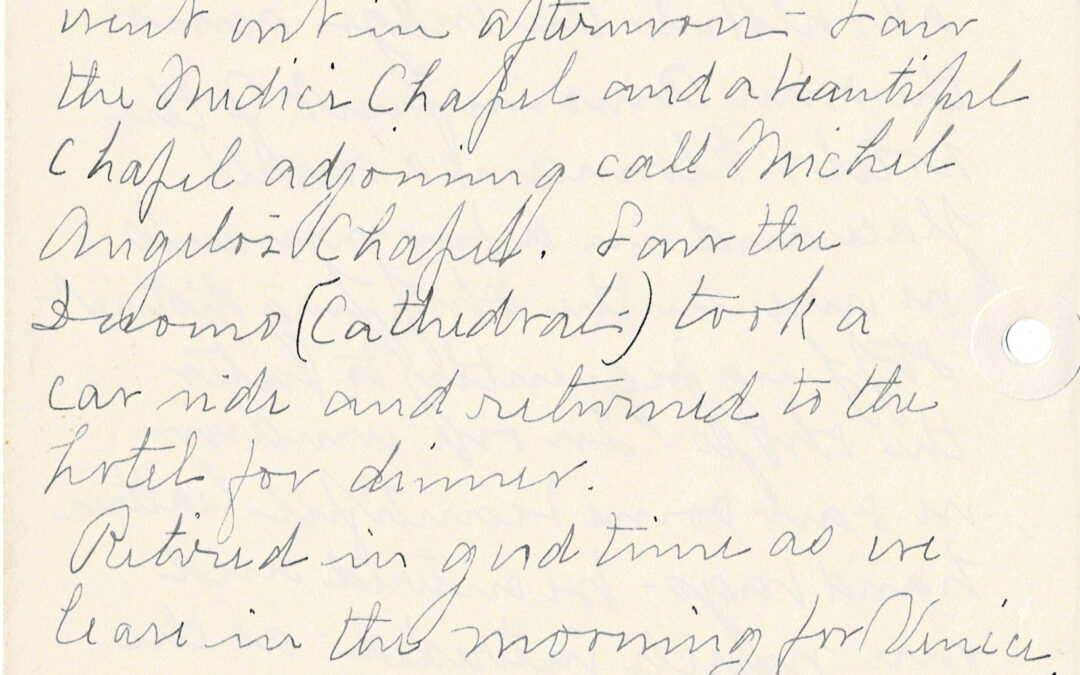 went out in afternoon - Saw
the Medici Chapel and a beautiful
Chapel adjoining call Michel
Angelo's Chapel. Saw the
Duomo (Cathedral) took a
car ride and returned to the
hotel for dinner.
Retired in good time as we
leave in the morning for Venice.